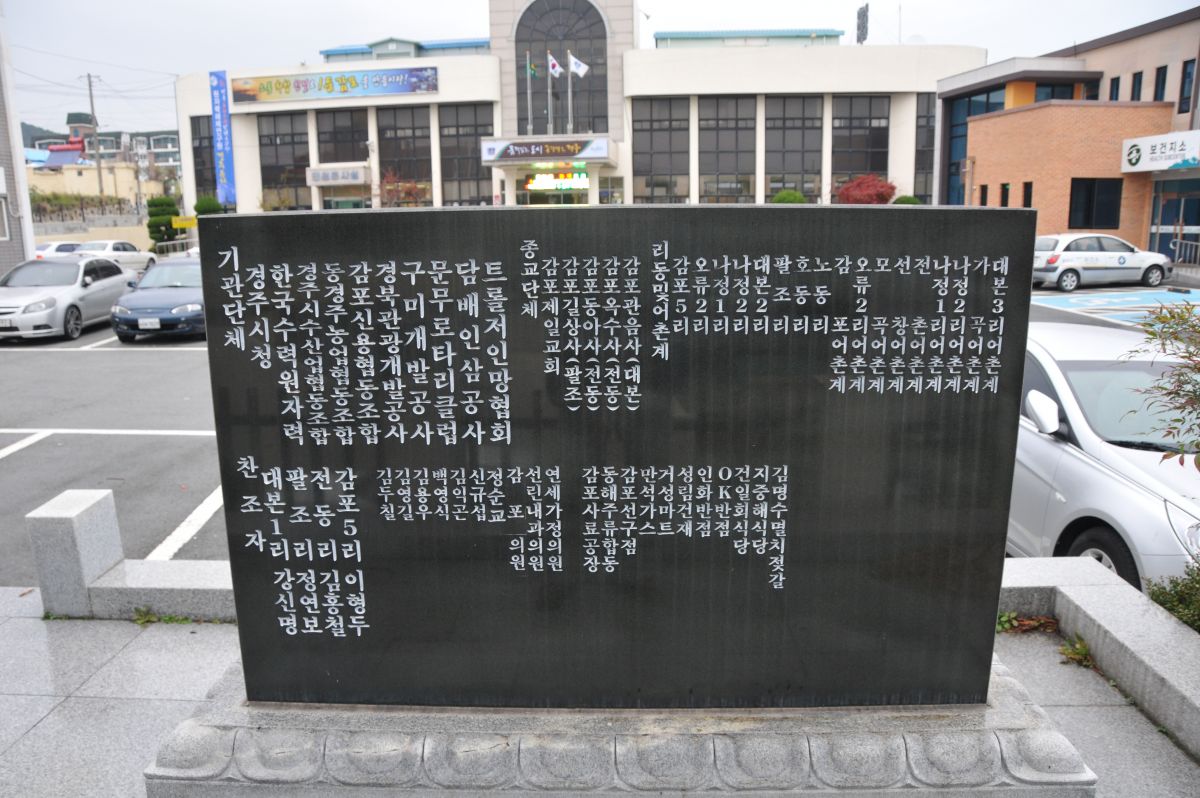 보건지소
HEALTH SUBCENTER
기관단체
경주시청
한국수력원자력
경주시수산업협동조합
동경주농업협동조합
감포신용협동조합
경북관광개발공사
구미개발공사
문무로타리클럽
담배인삼공사
트롤저인망협회
종교단체
감포제일교회
감포길상사(팔조)
감포동아사(전동)
감포옥수사(전동)
감포관음사(대본)
리동및어촌계
감포5리
오류2리
나정1리
나정2리
대본2리
팔조리
호동리
노동리
감포어촌계
오류2리어촌계
모곡어촌계
선창어촌계
전촌어촌계
나정1리어촌계
나정2리어촌계
가곡어촌계
대본3리어촌계
찬조자
대본1리 강신명
팔조리 정연보
전동리 김홍철
감포5리 이형두
김두칠
김영길
김용우
백영식
김익곤
신규섭
정순교
감포의원
선린내과의원
연세가정의원
감포사료공장
동해주류합동
감포선구점
만석가스
거성마트
성림건재
인화반점
OK반점
건일회식당
지중해식당
김명수멸치젓갈